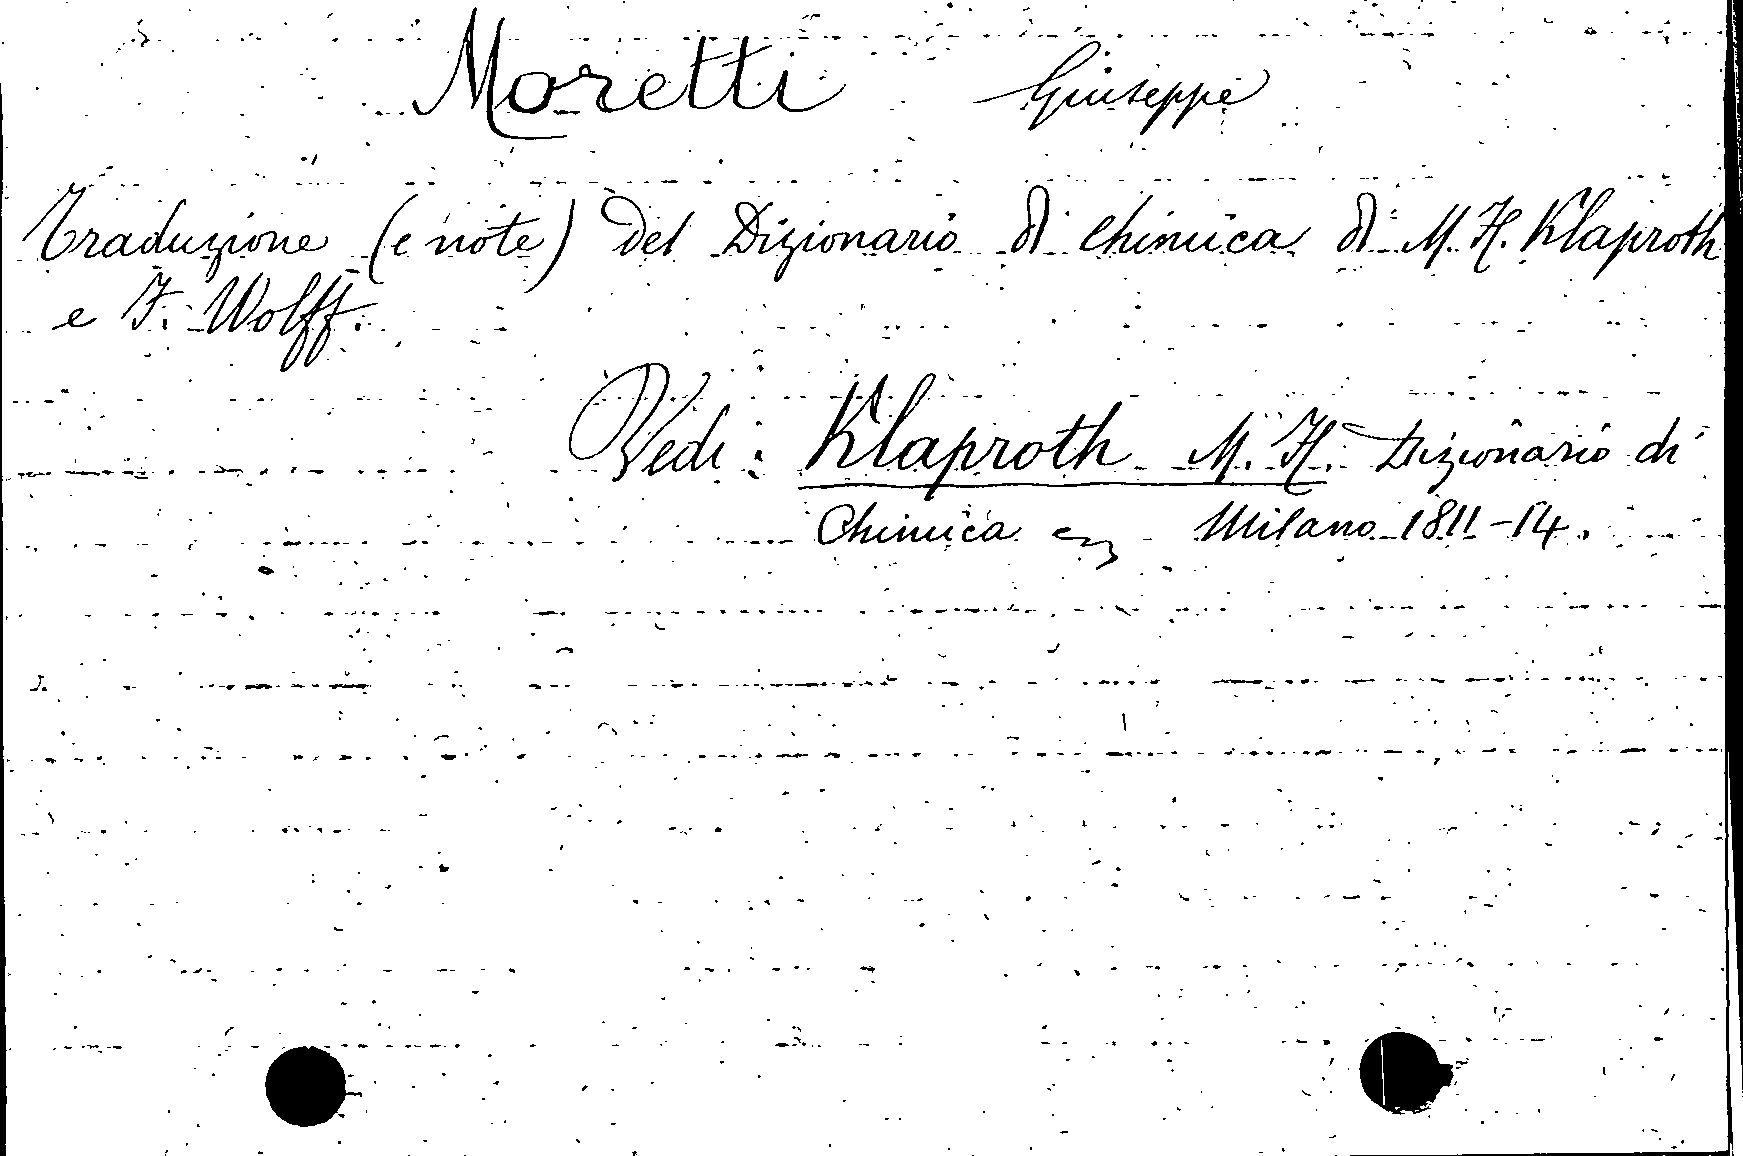 Moretti Giuseppe
Traduzione (e note) del Dizionario di Chimica di M. H. Klaproth
e F. Wolff.
Vedi: Klaproth M. H. Dizionario di
Chimica Milano 1811-14.